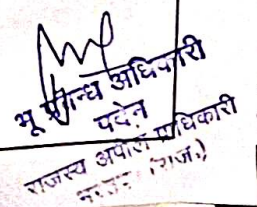 भू प्रबन्ध अधिकारी
पदेन
राजस्व अपील अधिकारी
(राज.)